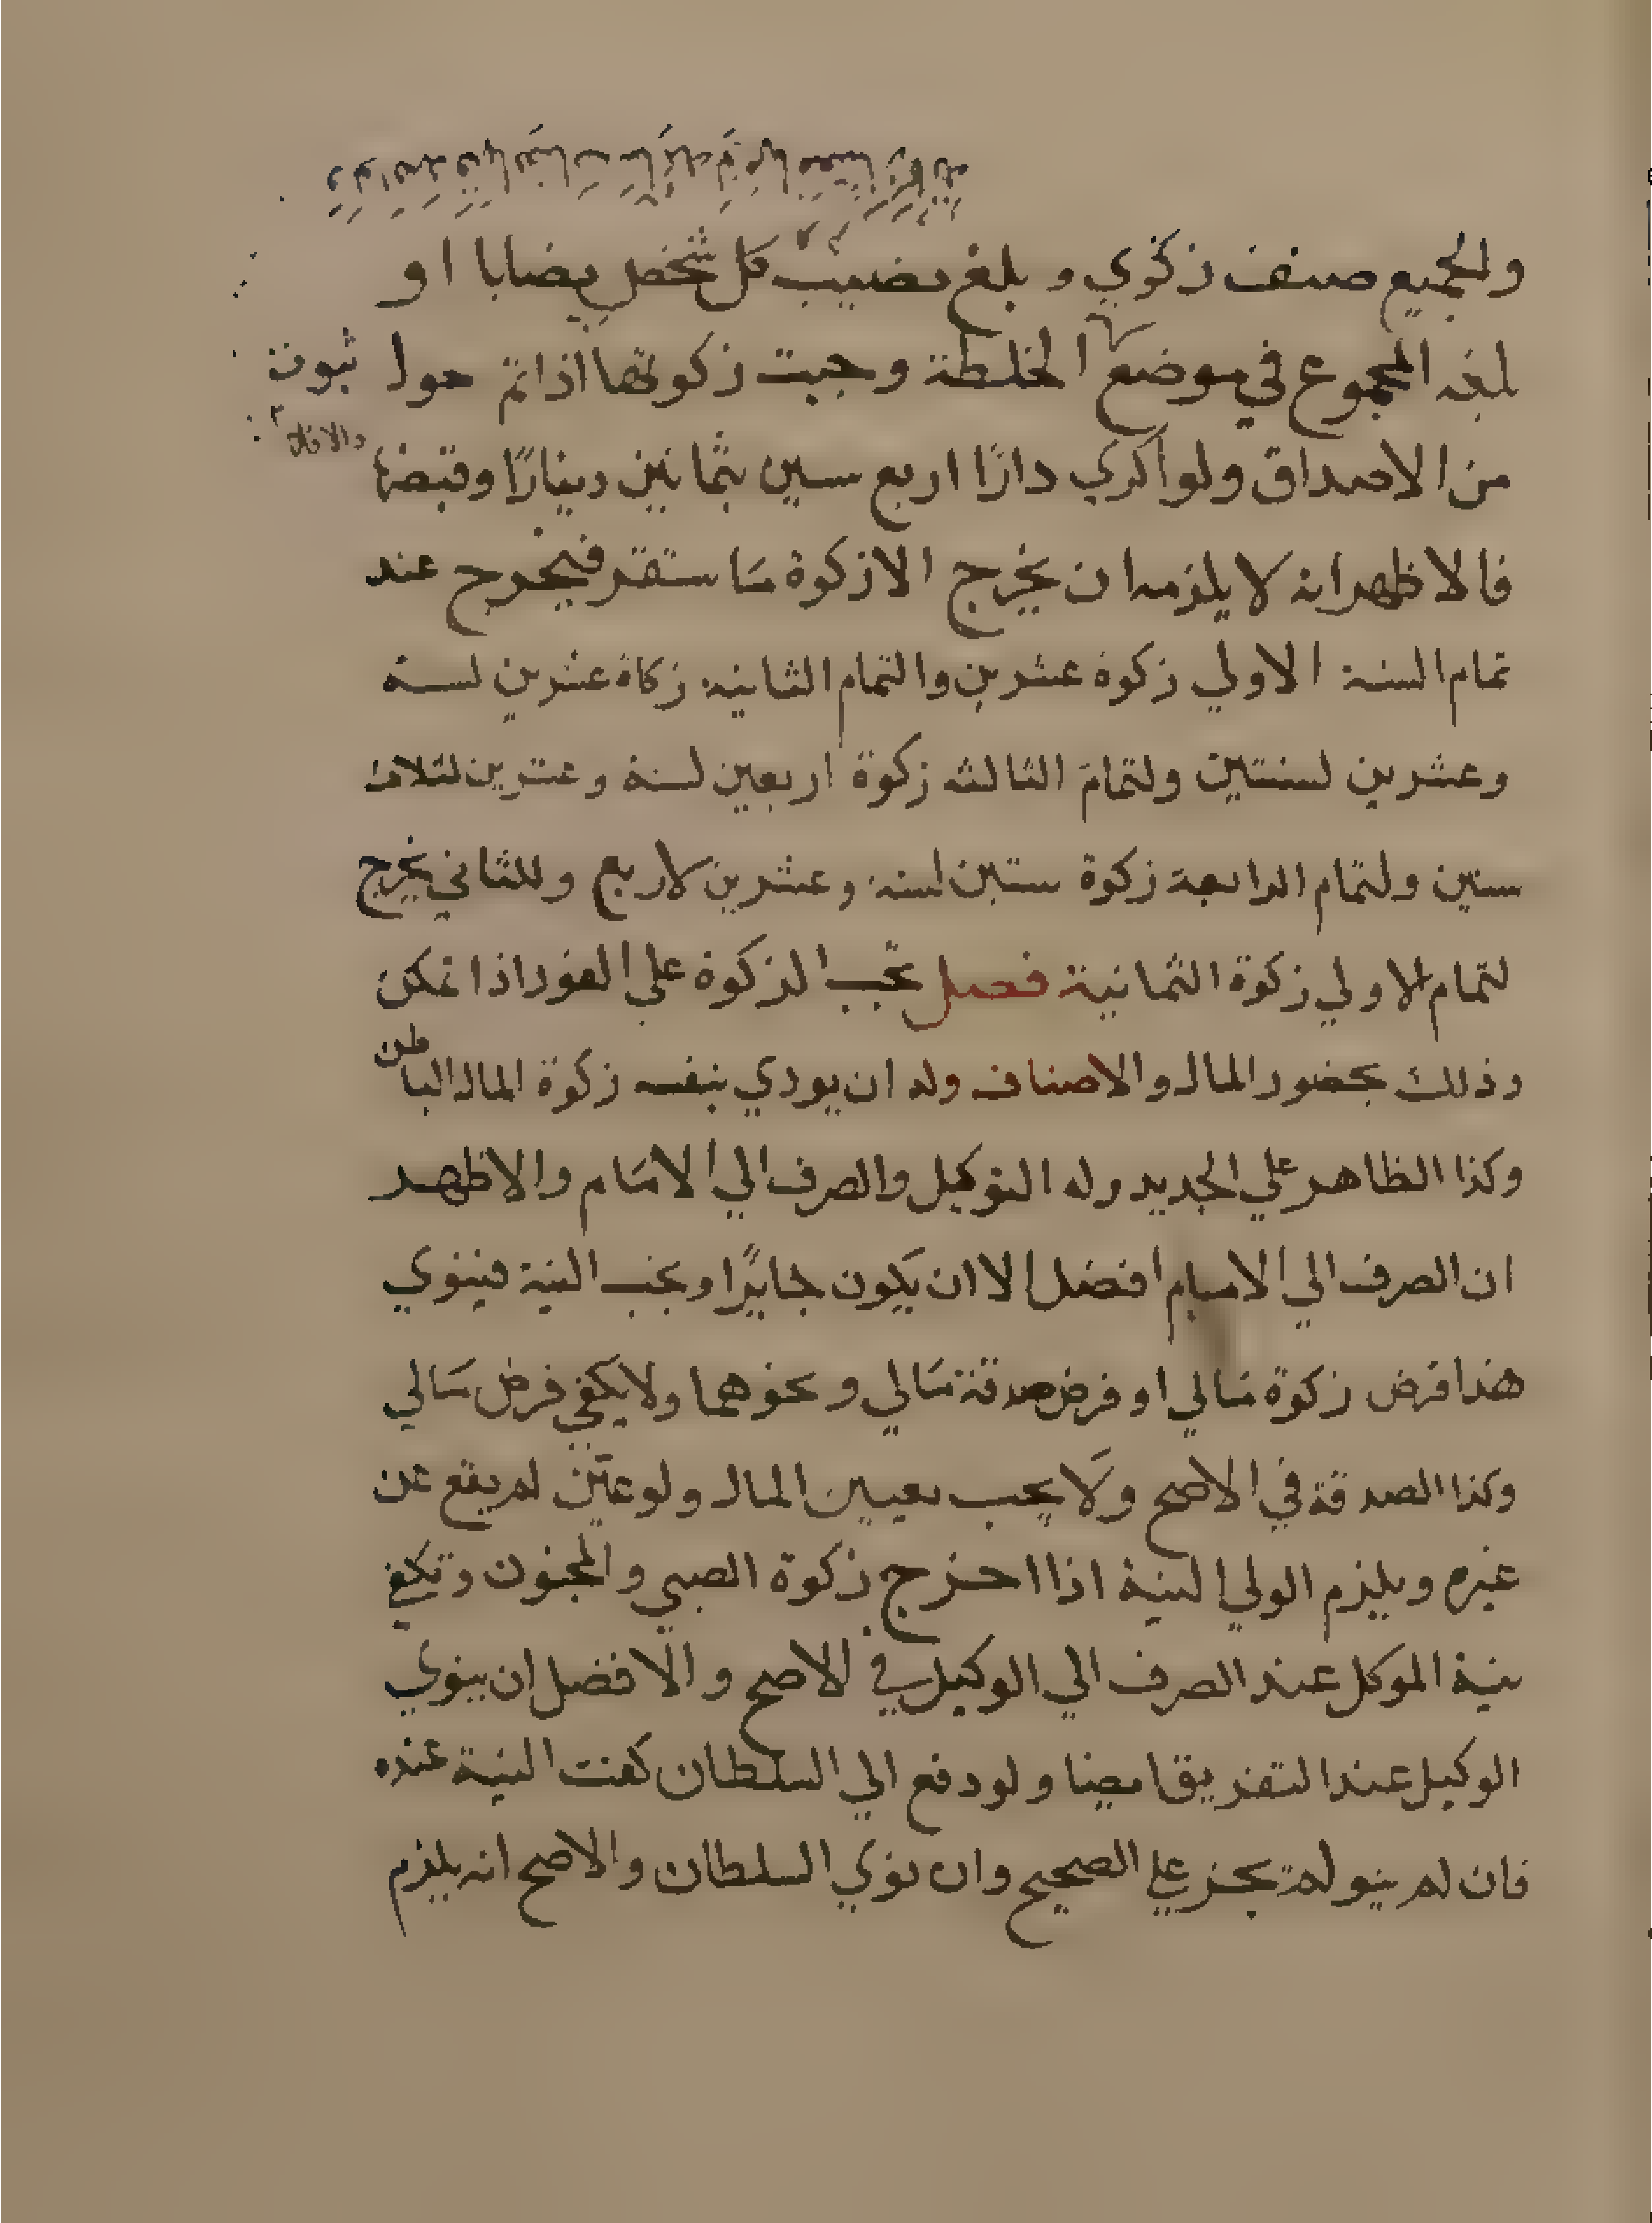 والجميع صنف زكوي و بلغ نصيب كل شخص نصابا او
بلغه المجموع في موضع الخلطة وجبت زكوتها اذا تم حول
من الاصداق ولو اكري دارًا اربع سنين بثمانين دينارًا وقبضها
فالاظهر انه لا يلزمه ان يخرج الا زكوة ما ستقر فيخرج عند
تمام السنة الاولي زكوة عشرين والتمام الثانية زكاة عشرين لسنة
وعشرين لسنتين ولتمام الثالثه زكوة اربعين لسنة وعشرين لثلاث
سنين ولتمام الرابعة زكوة ستين لسنه وعشرين لاربع وللثاني يخرج
لتمام الاولي زكوة الثمانية فصل تجب الزكوة علي الفور اذا تمكن
وذلك بحضور المال والاصناف وله ان يودي بنفسه زكوة المال الباطن
وكذا الظاهر علي الجديد وله التوكيل والصرف الي الامام والاظهر
ان الصرف الي الامام افضل الا ان يكون جايرًا وتجب النية فينوي
هذا فرض زكوة مالي او فرض صدقة مالي ونحوهما ولا يكفي فرض مالي
وكذا الصدقة في الاصح ولا يجب تعيين المال ولو عيّن لم يقع عن
غيره ويلزم الولي النية اذا اخرج زكوة الصبي والمجنون وتكفي
نية الموكل عند الصرف الي الوكيل في الاصح والافضل ان ينوي
الوكيل عند التفريق ايضا ولو دفع الي السلطان كفت النية عنده
فان لم ينو لم يجز علي الصحيح وان نوي السلطان والاصح انه يلزم